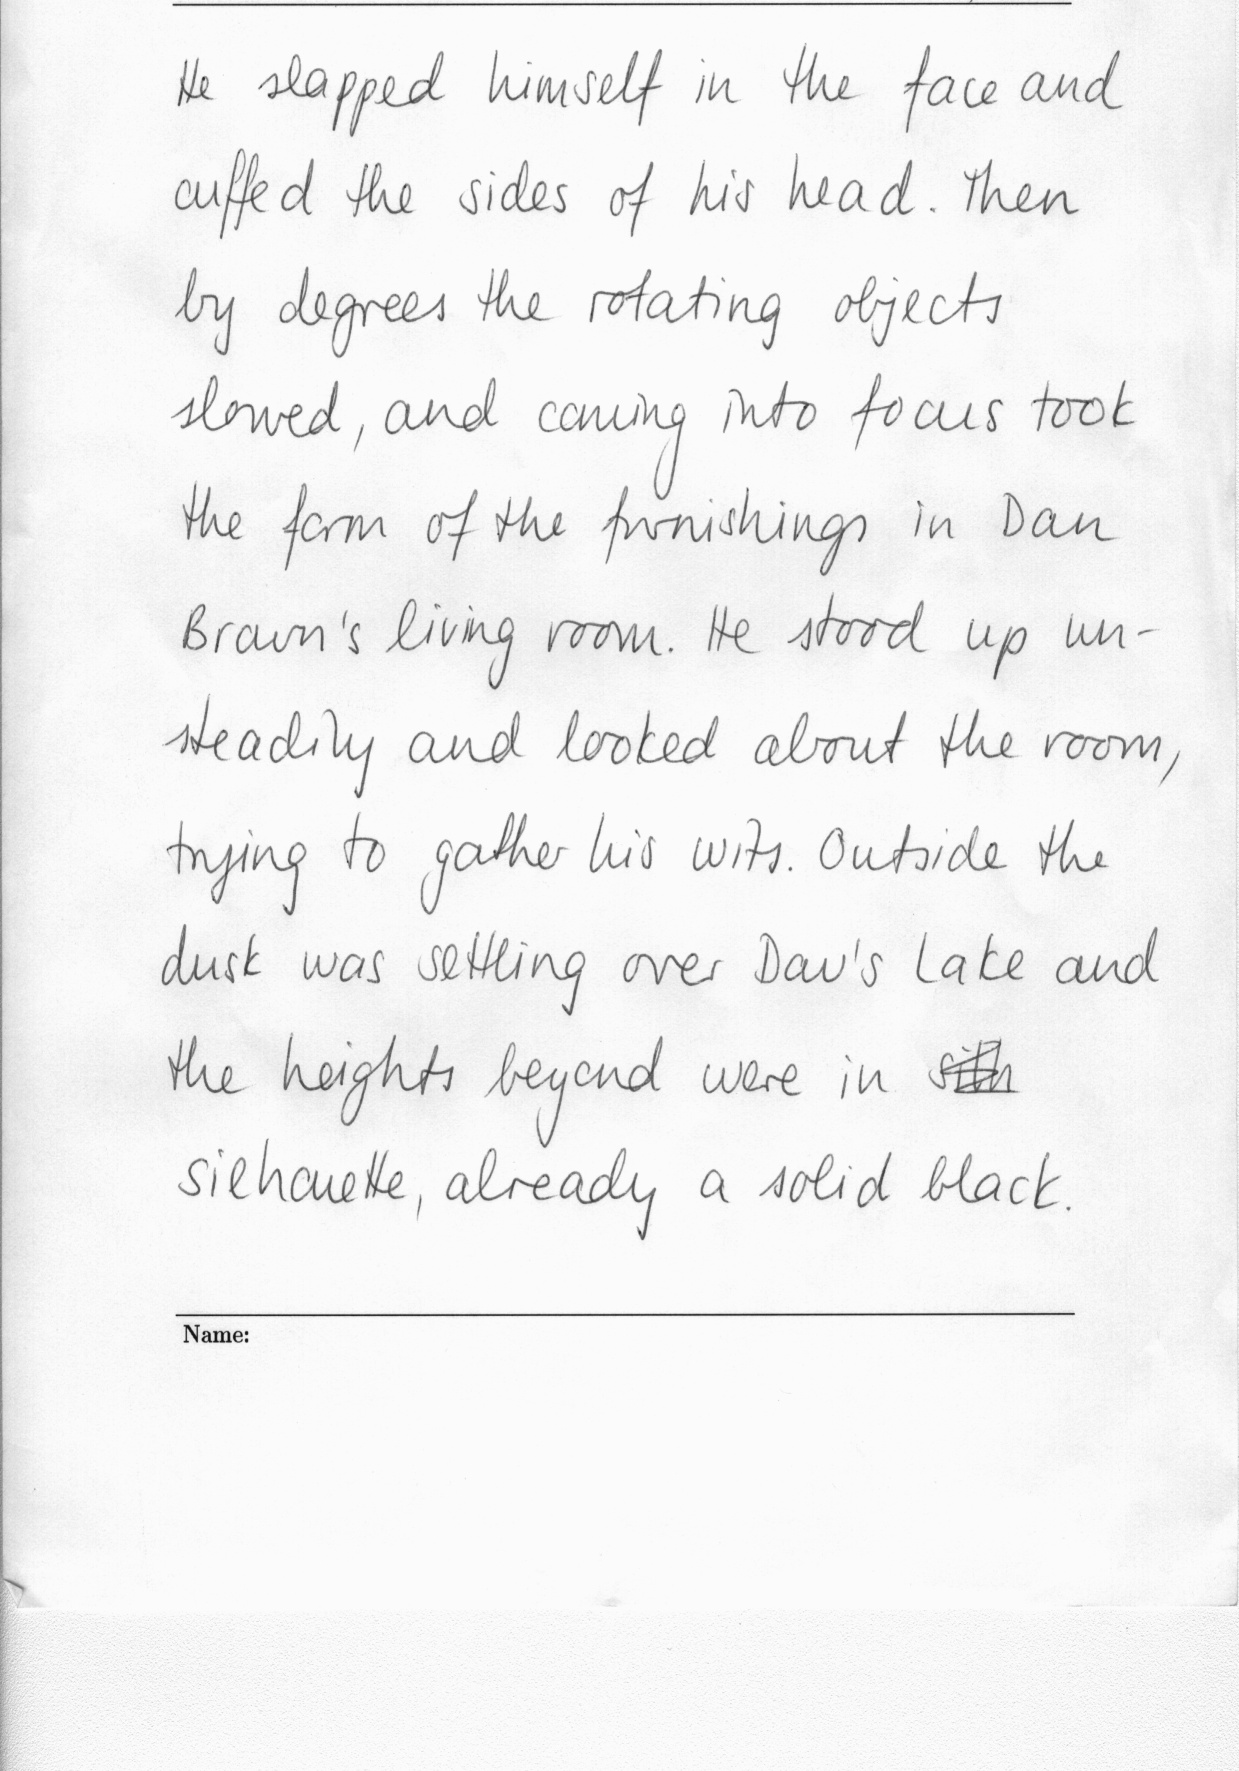 He slapped himself in the face and
cuffed the sides of his head. Then
by degrees the rotating objects
slowed, and coming into focus took
the form of the furnishings in Dan
Brown's living room. He stood up un-
steadily and looked about the room,
trying to gather his wits. Outside the
dusk was settling over Dav's Lake and
the heights beyond were in
silhouette, already a solid black.
Name: